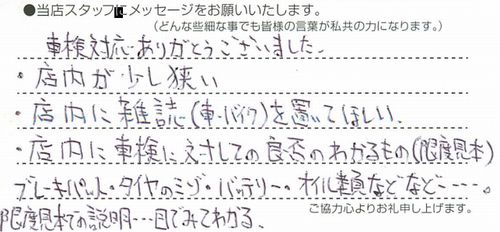 ●当店スタッフにメッセージをお願いいたします。
(どんな些細な事でも皆様の言葉が私共の力になります。)
車検対応ありがとうございました。
・店内が少し狭い
・店内に雑誌(車・バイク)を置いてほしい。
・店内に車検に対しての良否のわかるもの(限度見本)
ブレーキパット・タイヤのミゾ・バッテリー。オイル類などなど----。
限度見本での説明…目でみてわかる。
ご協力心よりお礼申し上げます。